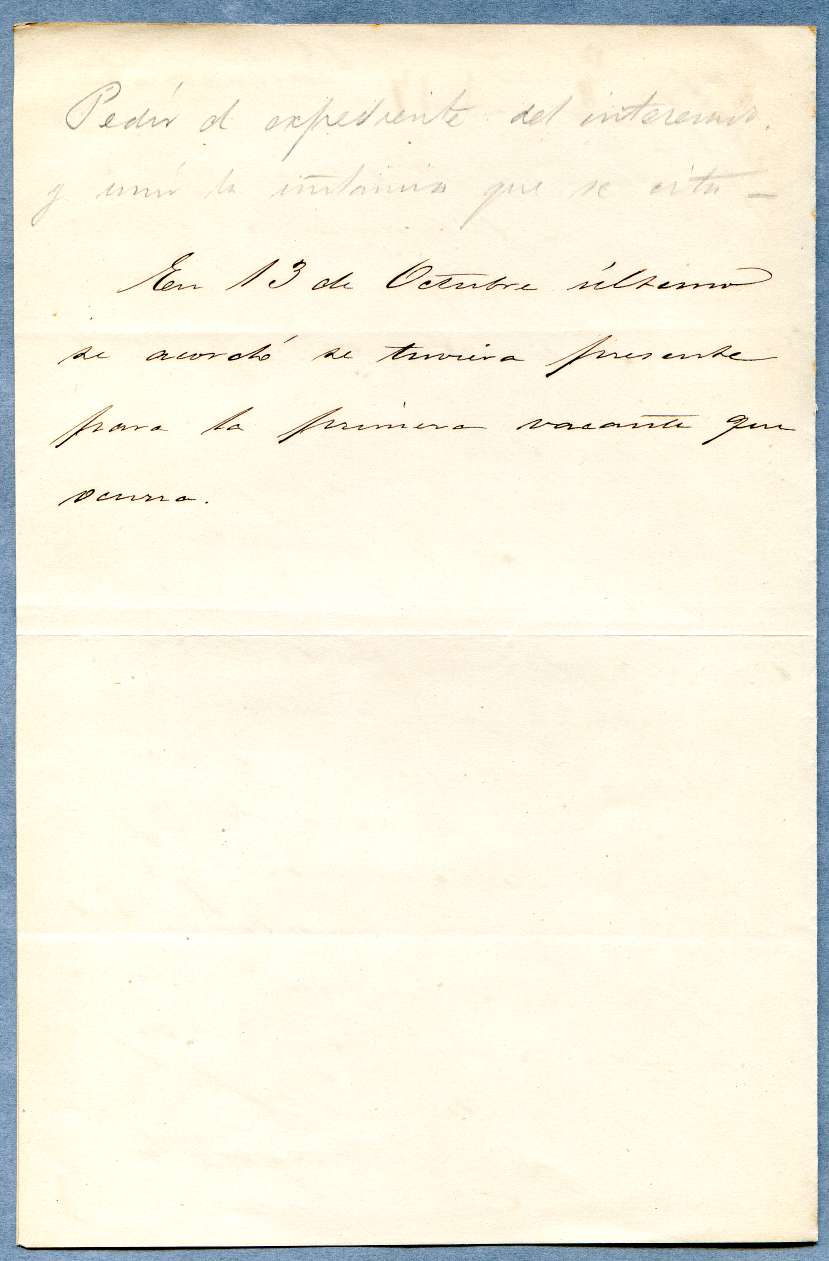 Pedir el expediente del interesado.
y unir la instancia que se cita –
En 13 de Octubre último
se acordó se tuviera presente
para la primera vacante que
ocurra.